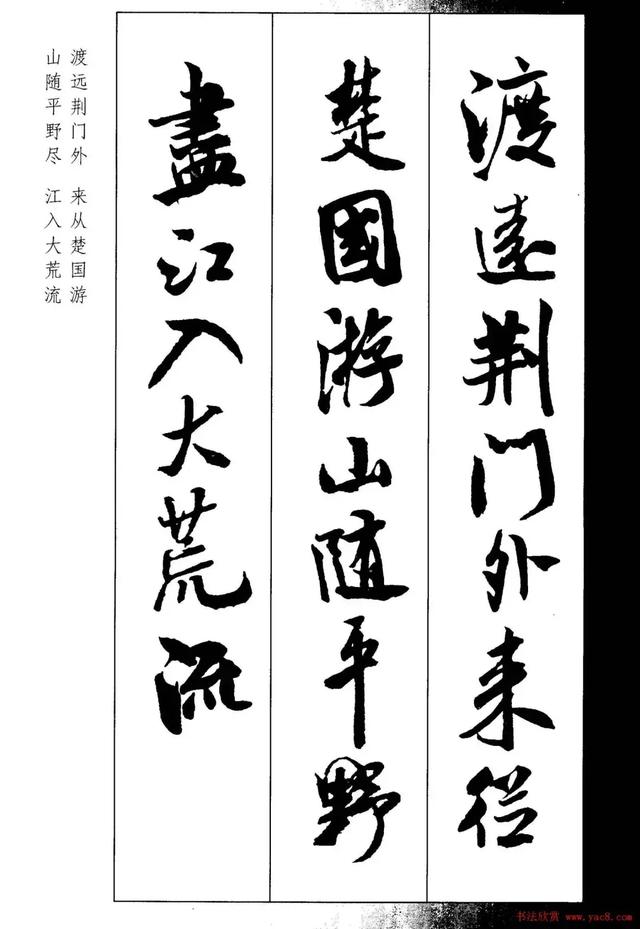 渡遠荆门外来從
楚國游山随平野
盡江入大荒流
渡远荆门外 来从楚国游
山随平野尽 江入大荒流
书法欣赏 www.yac8.com